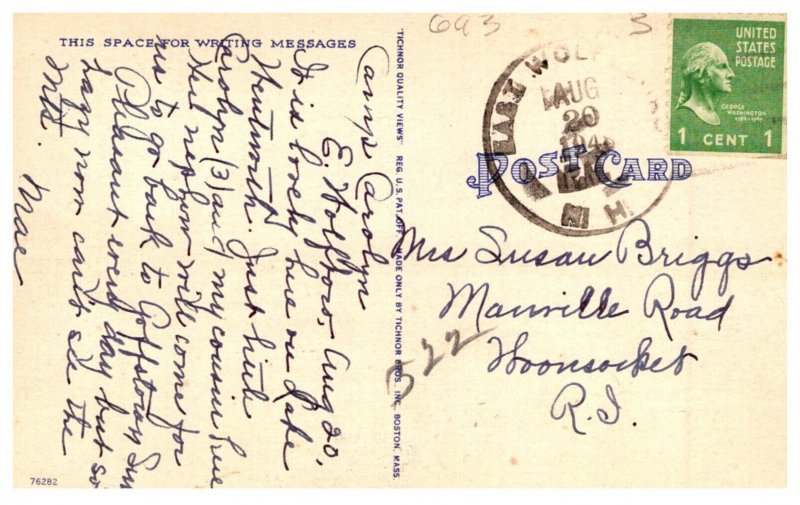 693 3
THIS SPACE FOR WRITING MESSAGES
Camp Carolyn
E. Wolfboro, Aug 20,
It is lovely here on Lake
Wentworth. Just little
Carolyn (3) and my cousin here
Her nephew will come for
us to go back to Goffstown Sun
Pleasant went day but so
hazy now can't see the
Mts. Mae
76282
"TICHNOR QUALITY VIEWS" REG. U.S. PAT. OFF. MADE ONLY BY TICHNOR BROS. INC., BOSTON, MASS.
EAST WOLF
AUG
20
N H.
UNITED
STATES
POSTAGE
GEORGE
WASHINGTON
1789-1797
1 CENT 1
POST CARD
Mrs Susan Briggs
Manville Road
Woonsocket
R.I.
522